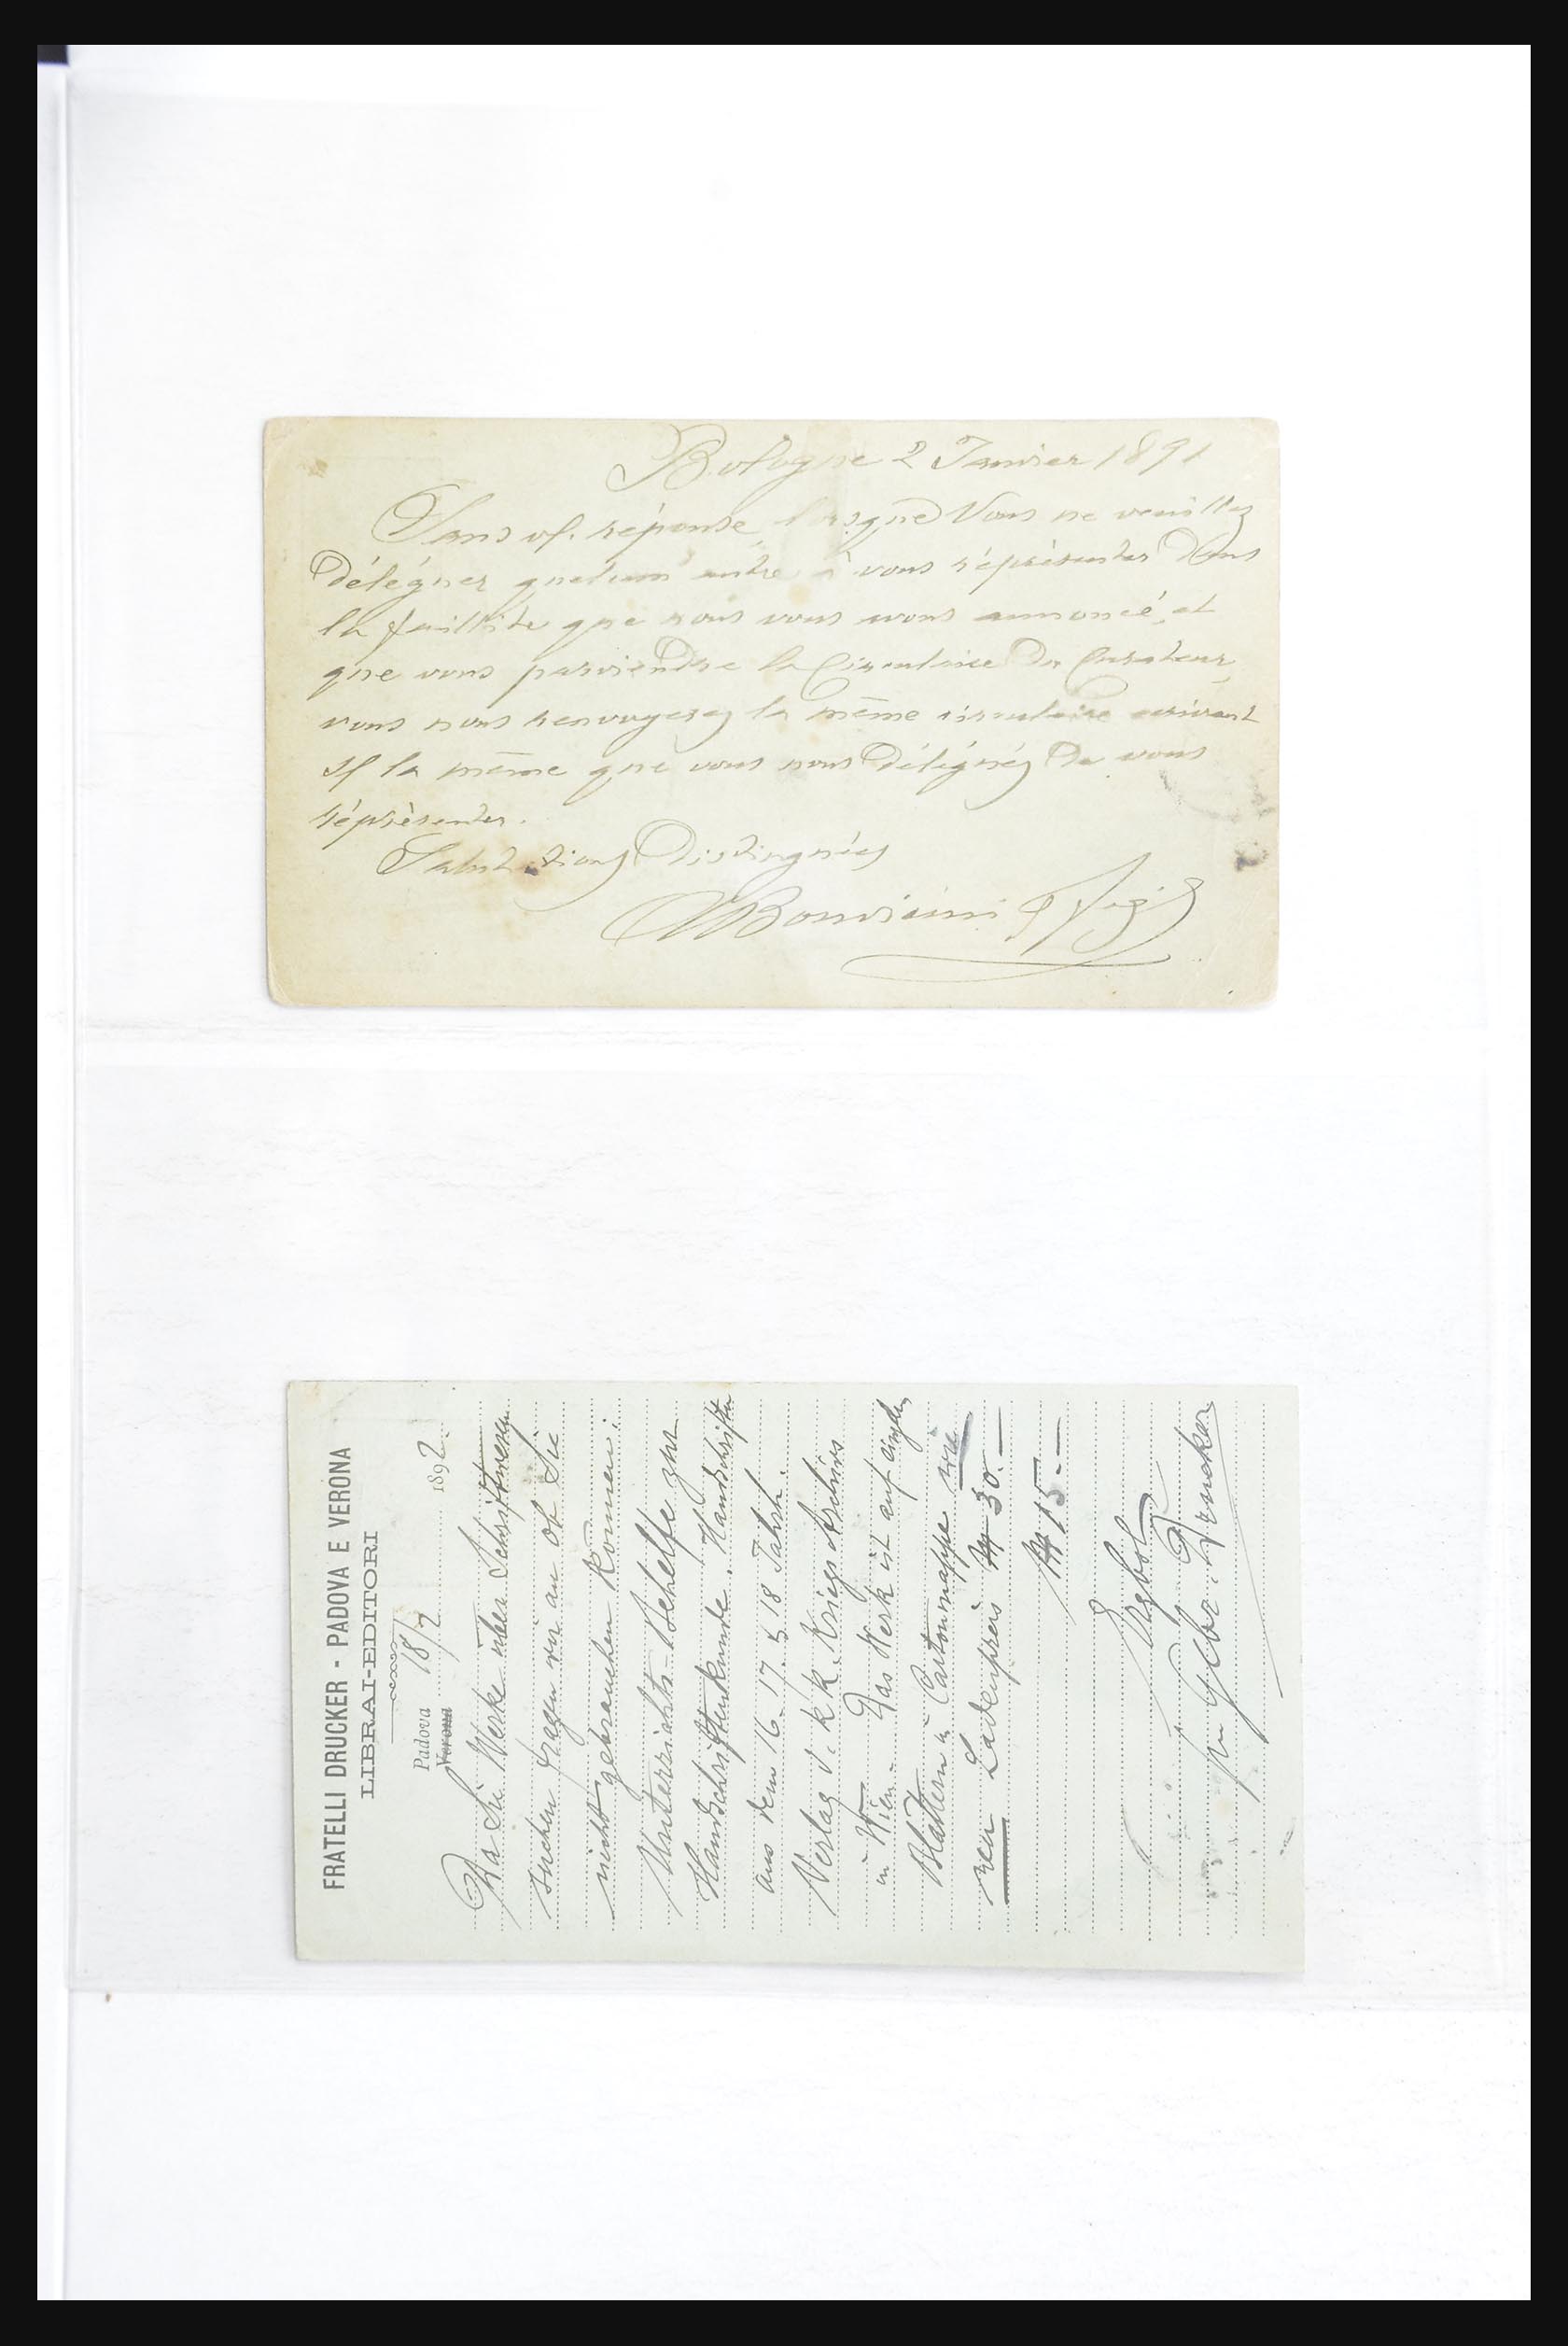 Bologne 2 Janvier 1891
Sans vs. réponse, lorsque Vous ne veuillez
déléguer quelcun autre à vous réprésenter dans
la faillite que nous vous avons annoncé, et
que vous parviendra la Circulaire du Curateur,
vous nous renvoyerez la même circulaire écrivant
sr la même que vous nous délégués de vous
réprèsenter.
Salutations Distinguées
FRATELLI DRUCKER - PADOVA E VERONA
LIBRAI-EDITORI
Padova
Verona 18/2 1892.
Da Sie Werke über Schriftwesen
suchen fragen wir an ob Sie
nicht gebrauchen können:
Unterrichts-Behelfe zur
Handschriftenkunde. Handschriften
aus dem 16. 17. & 18 Jahrh.
Verlag d. k. k. Kriegs Archivs
in Wien. Das Werk ist auf einzeln
Blättern in Cartonmappe wie
neu Ladenpreis M 30.—
M 15.—
Gebr. Drucker